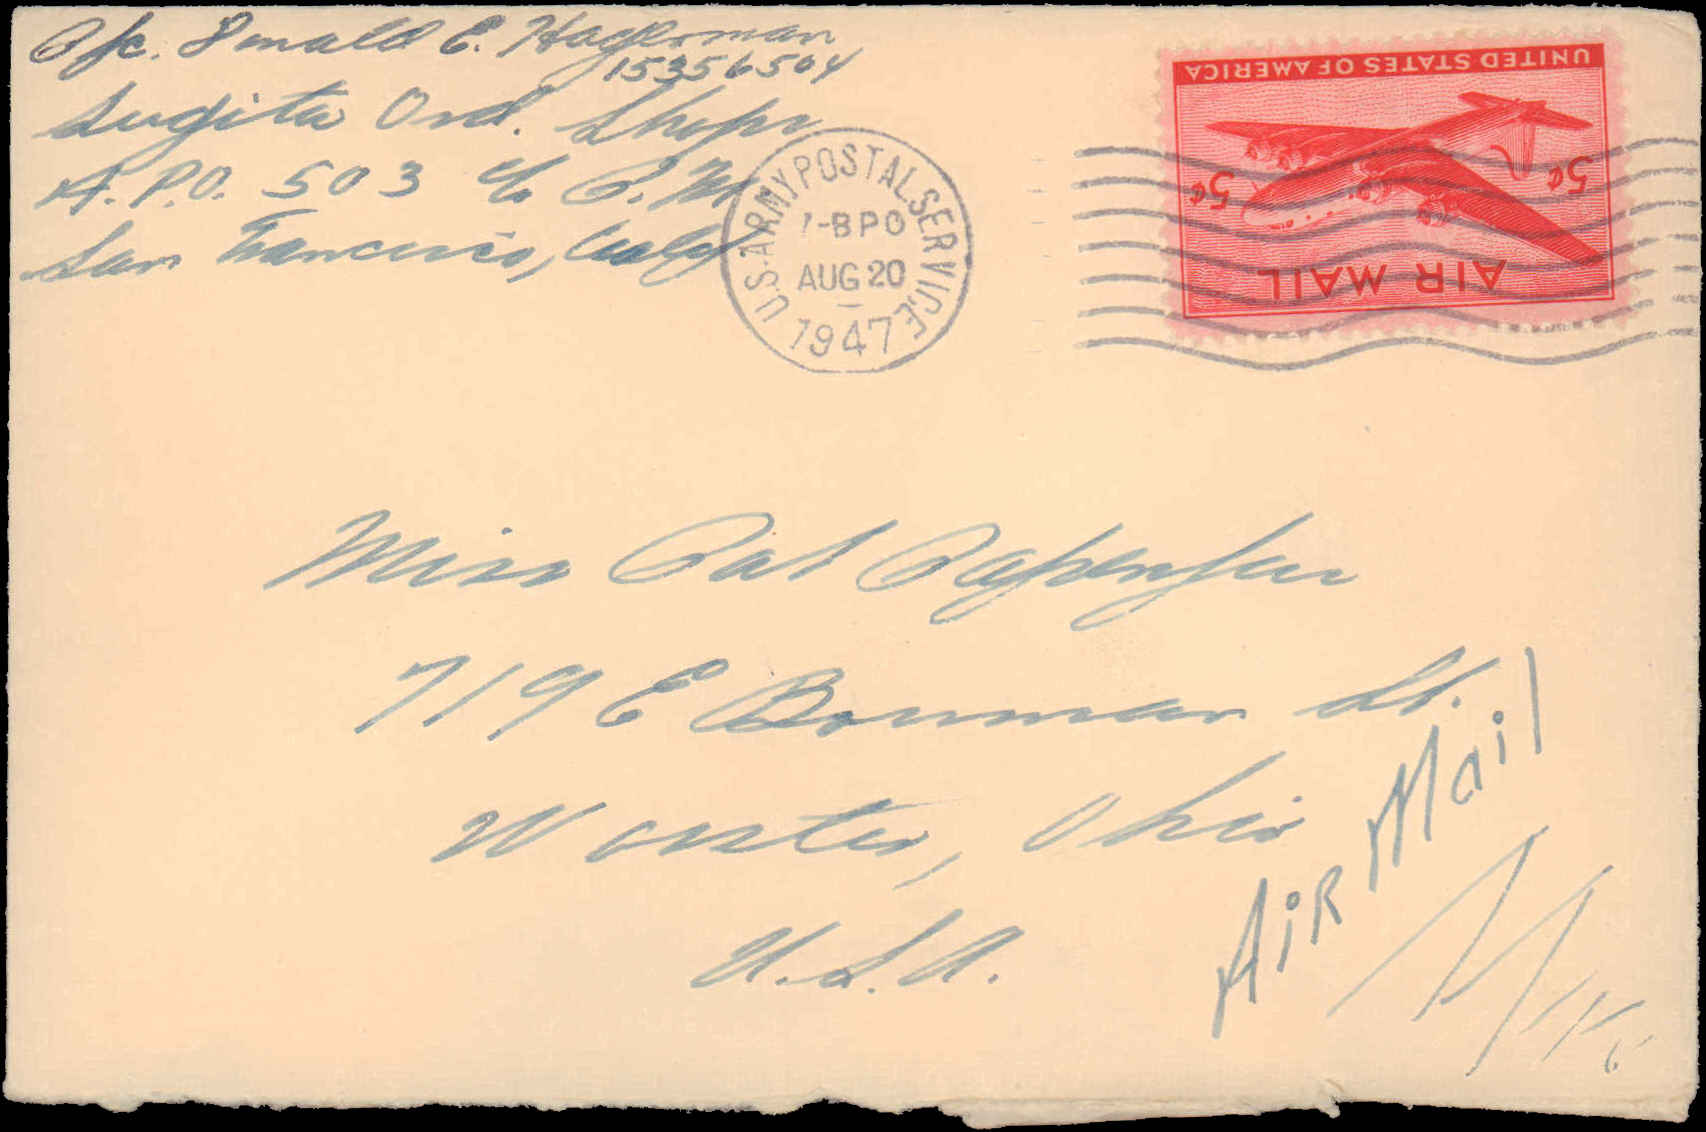 Pfc. Donald E. Hagerman
15356504
Sugita Ord. Shops
A.P.O. 503 c/o P.M.
San Francisco, Calif
U.S. ARMY POSTAL SERVICE
1-BPO
AUG 20
1947
UNITED STATES OF AMERICA
5¢ 5¢
AIR MAIL
Miss Pat
719 E Bowman St.
Wooster, Ohio
U.S.A.
Air Mail